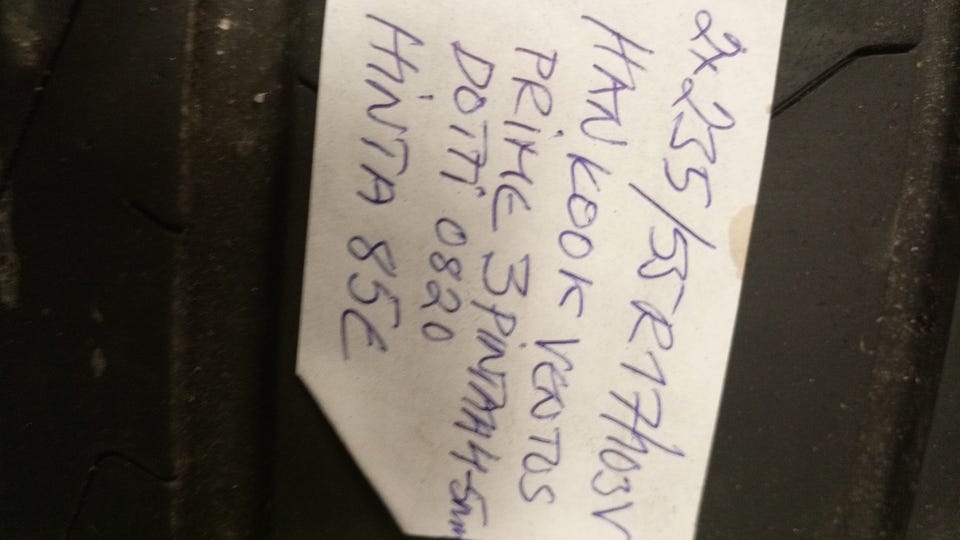 2x 235/55R17 103V
HANKOOK VENTUS
PRIME 3 PINTAA 4-5mm
DOTTI 0820
HINTA 85€